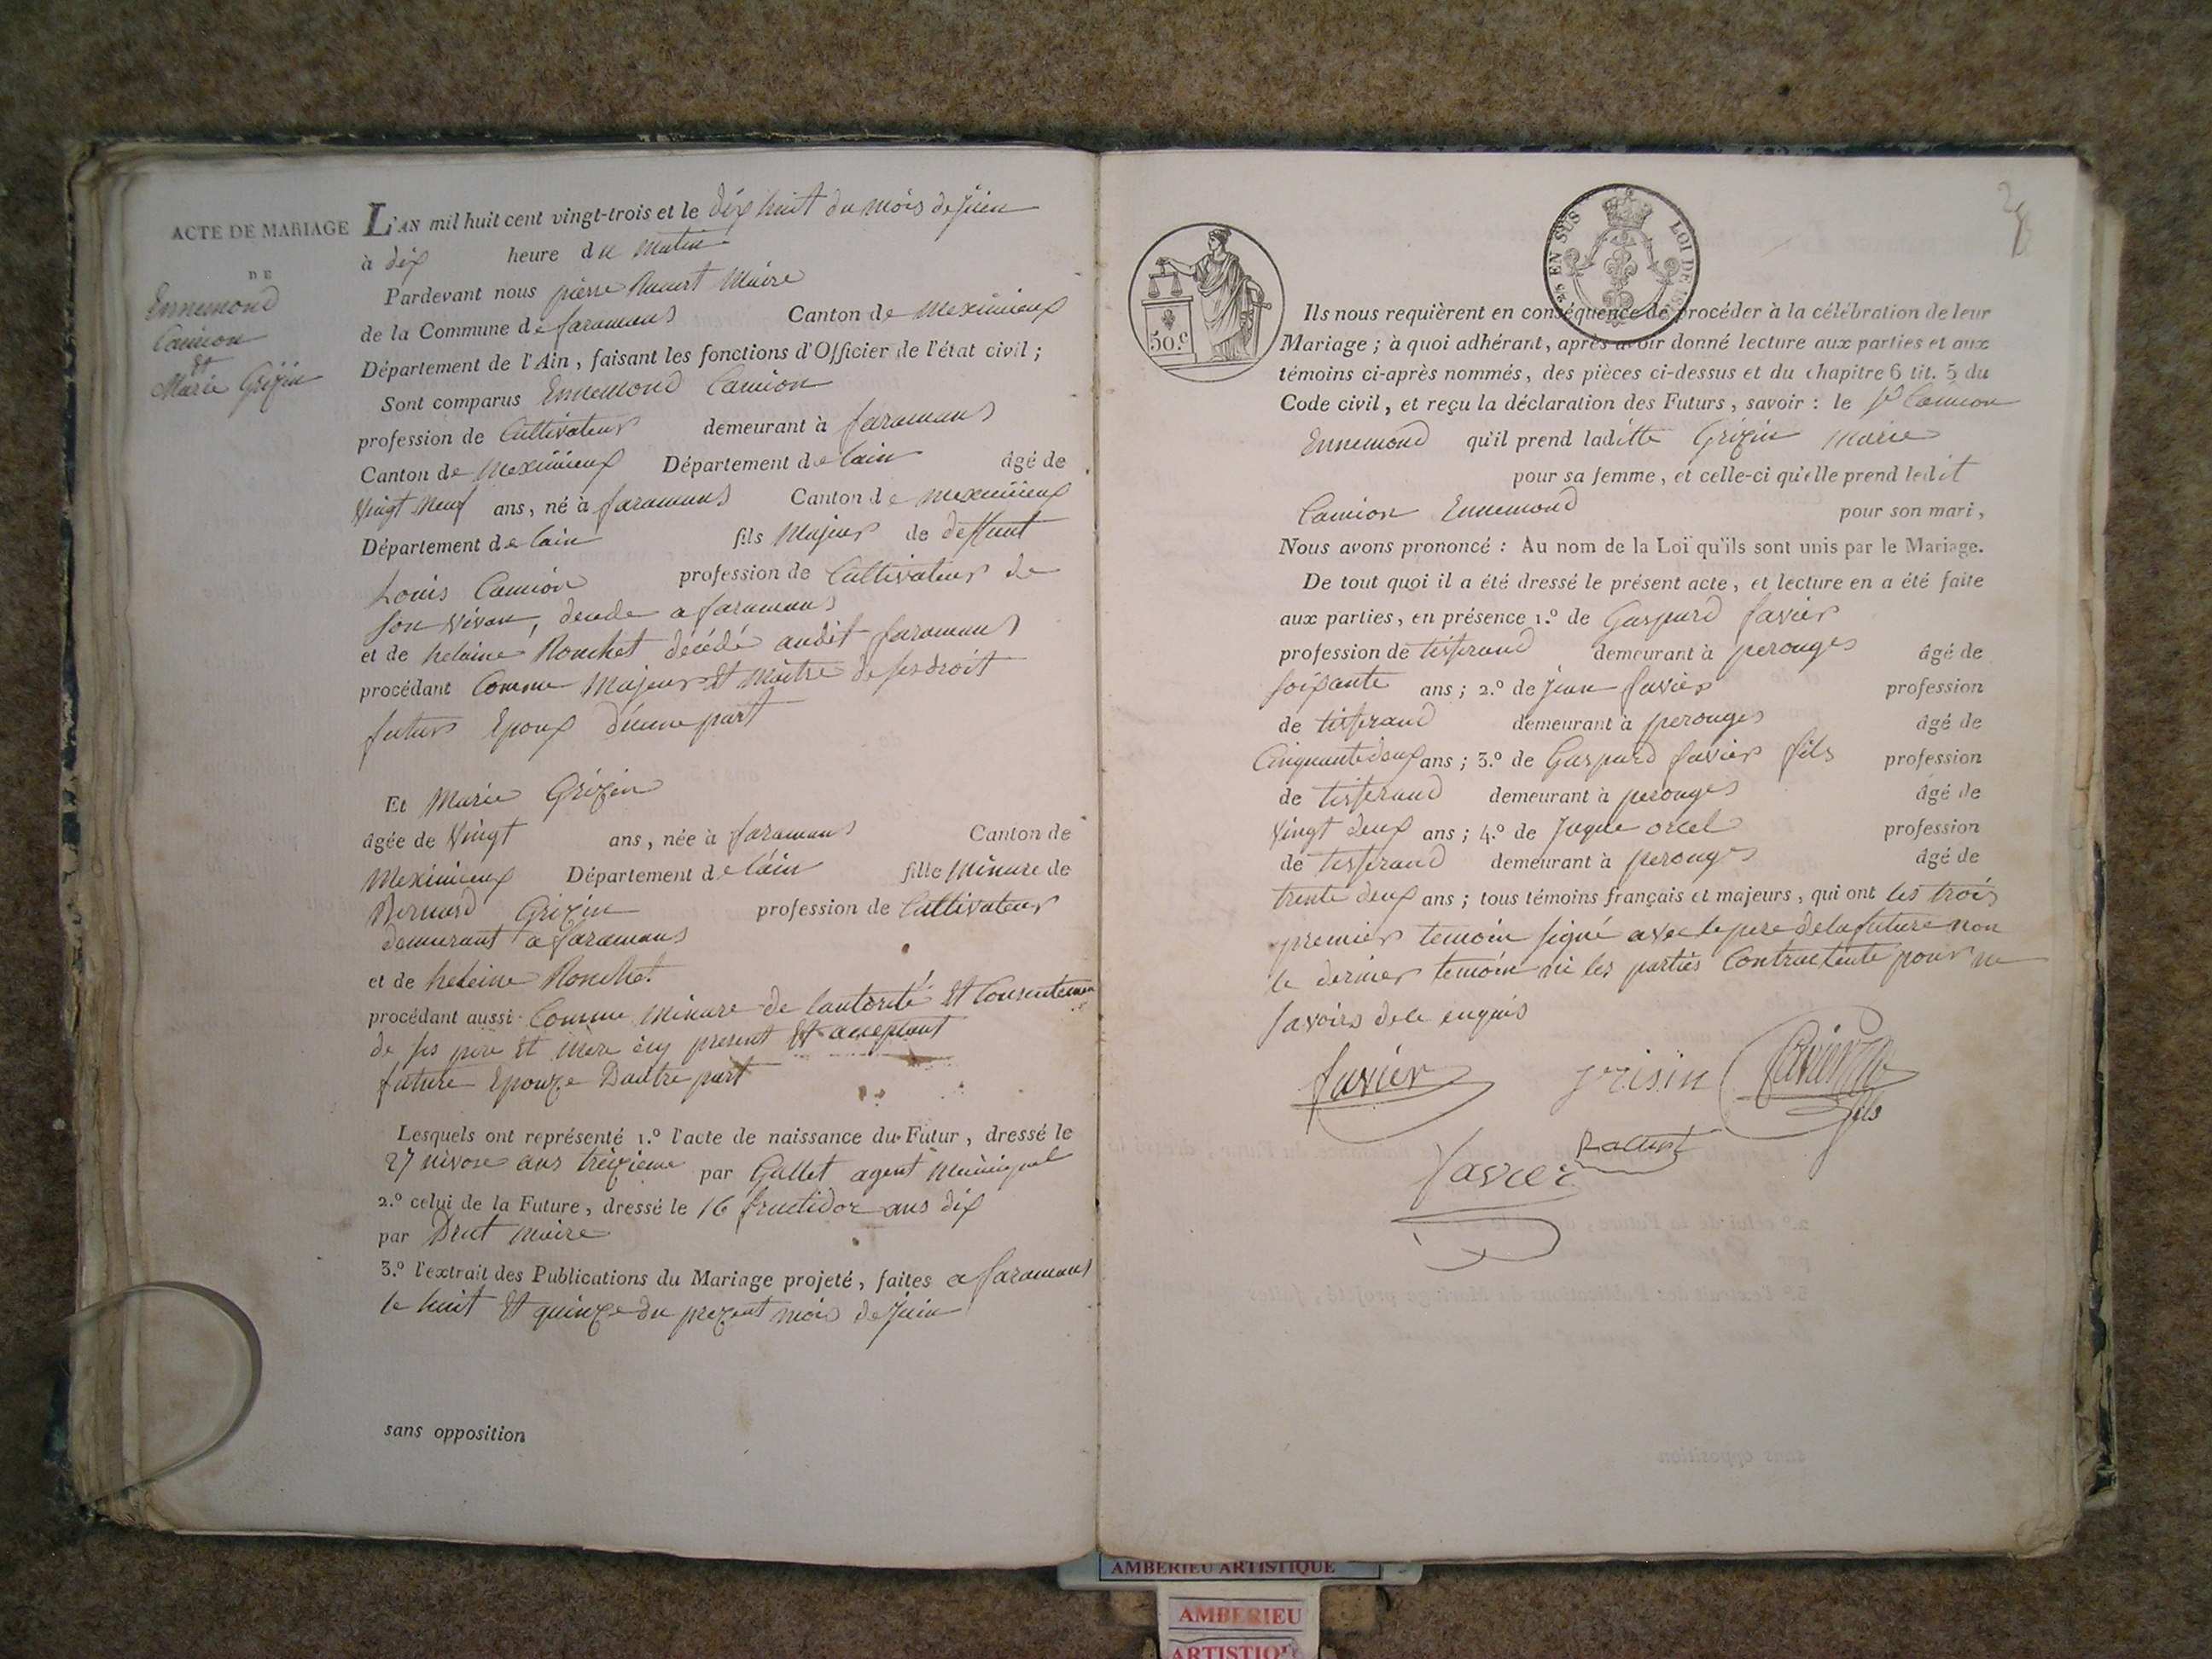 ACTE DE MARIAGE
DE
Ennemond
Camion
et
Marie Grizin
L'AN mil huit cent vingt-trois et le dix huit du mois de juin
à dix heure du matin
Pardevant nous pierre Ruaurt Maire
de la Commune de faramans Canton de Meximieux
Département de l'Ain, faisant les fonctions d'Officier de l'état civil;
Sont comparus Ennemond Camion
profession de Cultivateur demeurant à faramans
Canton de Meximieux Département de lain âgé de
Vingt Neuf ans, né à faramans Canton de meximieux
Département de lain fils Majeur de deffunt
Louis Camion profession de Cultivateur de
son vivan, decede a faramans
et de heleine Ronchet décédé audit faramans
procédant Comme Majeur et Maitre de ses droit
futur Epoux d'eune part
Et Marie Grizin
âgée de Vingt ans, née à faramans Canton de
Meximieux Département de láin fille Minure de
Bernard Grizin profession de Cultivateur
demeurant a faramans
et de heleine Ronchet
procédant aussi Comme Minure de lautorité et Consentemen
de ses père et mère icy present et acceptant
future Epouze Dautre part
Lesquels ont représenté 1.º l'acte de naissance du Futur, dressé le
27 nivose ans treizieme par Gallet agent Municipal
2.º celui de la Future, dressé le 16 fructidor ans dix
par Drut maire
3.º l'extrait des Publications du Mariage projeté, faites a faramans
le huit et quinze du prezent mois de juin
sans opposition
50.c
25 EN SUS LOI DE
Ils nous requièrent en conséquence de procéder à la célébration de leur
Mariage; à quoi adhérant, après avoir donné lecture aux parties et aux
témoins ci-après nommés, des pièces ci-dessus et du chapitre 6 tit. 5 du
Code civil, et reçu la déclaration des Futurs, savoir: le Sr Camion
Ennemond qu'il prend laditte Grizin Marie
pour sa femme, et celle-ci qu'elle prend ledit
Camion Ennemond pour son mari,
Nous avons prononcé: Au nom de la Loi qu'ils sont unis par le Mariage.
De tout quoi il a été dressé le présent acte, et lecture en a été faite
aux parties, en présence 1.º de Gaspard favier
profession de tisserand demeurant à perouges âgé de
soixante ans; 2.º de jean favier profession
de tisserand demeurant à perouges âgé de
Cinquante deux ans; 3.º de Gaspard favier fils profession
de tisserand demeurant à perouges âgé de
Vingt deux ans; 4.º de Jaque orcel profession
de tisserand demeurant à perouges âgé de
trente deux ans; tous témoins français et majeurs, qui ont les trois
premier temoin signé avec le pere de la future non
le dernier temoin ni les parties Contractente pour ne
savoirs dele enquis
favier grisin favier
fils
favier